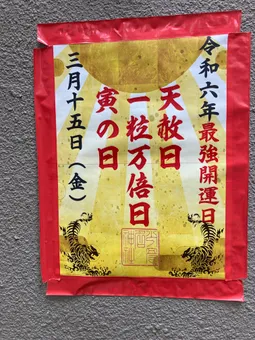 令和六年最強開運日
天赦日
一粒万倍日
寅の日
三月十五日（金）